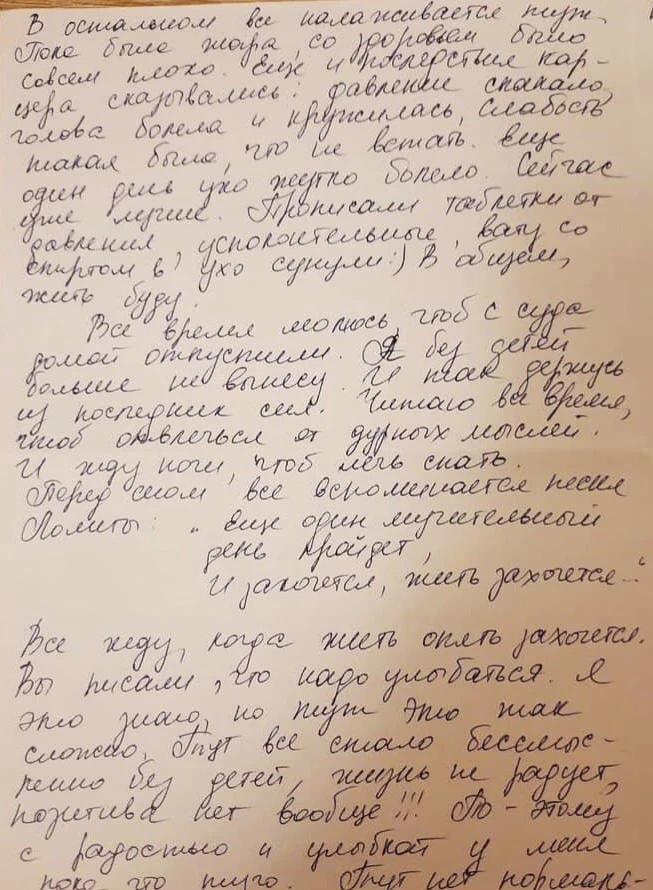 В остальном все налаживается тут.
Пока была жара, со здоровьем было
совсем плохо. Еще и последствия кар-
цера сказывались: давление скакало,
голова болела и кружилась, слабость
такая была, что не встать. Еще
один день ухо жутко болело. Сейчас
уже лучше. Прописали таблетки от
давления, успокоительные, вату со
спиртом в ухо сунули :) В общем,
жить буду.
Все время молюсь, чтоб с суда
домой отпустили. Я без детей
больше не вынесу. И так держусь
из последних сил. Читаю все время,
чтоб отвлечься от дурных мыслей.
И жду ночи, чтоб лечь спать.
Перед сном все вспоминается песня
Лолиты: „Еще один мучительный
день пройдет,
И захочется, жить захочется..."
Все жду, когда жить опять захочется.
Вы писали, что надо улыбаться. Я
это знаю, но тут это так
сложно. Тут все стало бессмыс-
ленно без детей, жизнь не радует,
позитива нет вообще!!! По-этому
с радостью и улыбкой у меня
пока что туго. Тут нет нормаль-